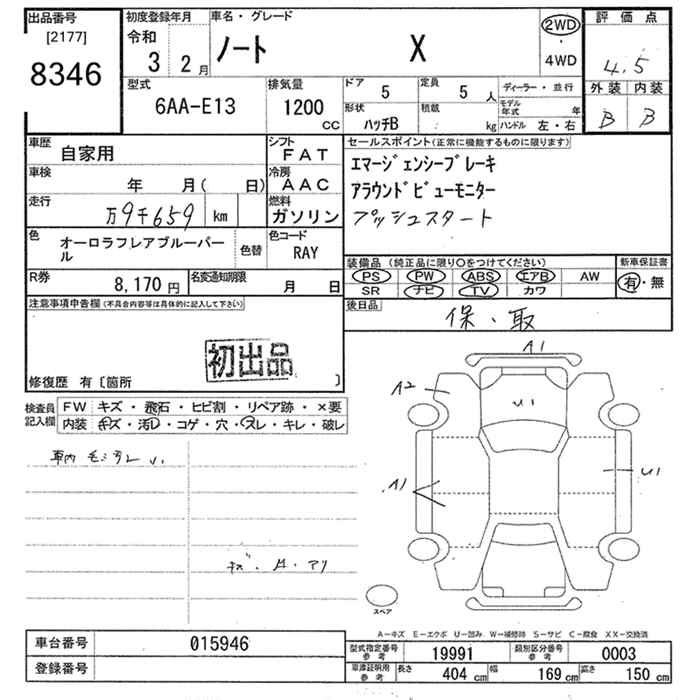 出品番号
[2177]
8346
初度登録年月
令和
3 2月
車名・グレード
ノート X
2WD
・
4WD
評価点
4.5
外装 内装
B B
型式
6AA-E13
排気量
1200
CC
ドア
5
定員
5 人
形状
ハッチB
積載
kg
ディーラー・並行
モデル年式 年
ハンドル 左・右
車歴
自家用
シフト
FAT
車検
年 月( 日)
冷房
AAC
走行
万9千659 km
燃料
ガソリン
色
オーロラフレアブルーパール
色替
色コード
RAY
R券
8,170 円
名変通知期限
月 日
セールスポイント(正常に機能するものに限ります)
エマージェンシーブレーキ
アラウンドビューモニター
プッシュスタート
装備品 (純正品に限り○をつけてください)
PS PW ABS エアB AW
SR ナビ TV カワ
新車保証書
有・無
後日品
保・取
注意事項申告欄(不具合内容等は具体的に記入して下さい)
初出品
修復歴 有〔箇所 〕
検査員記入欄
FW キズ・飛石・ヒビ割・リペア跡・×要
内装 キズ・汚レ・コゲ・穴・スレ・キレ・破レ
A1
A2
U1
A1
U1
スペア
A－キズ E－エクボ U－凹み W－補修跡 S－サビ C－腐食 XX－交換済
車台番号 015946
登録番号
型式指定番号 参考 19991
類別区分番号 参考 0003
車庫証明用 参考 長さ 404 cm 幅 169 cm 高さ 150 cm